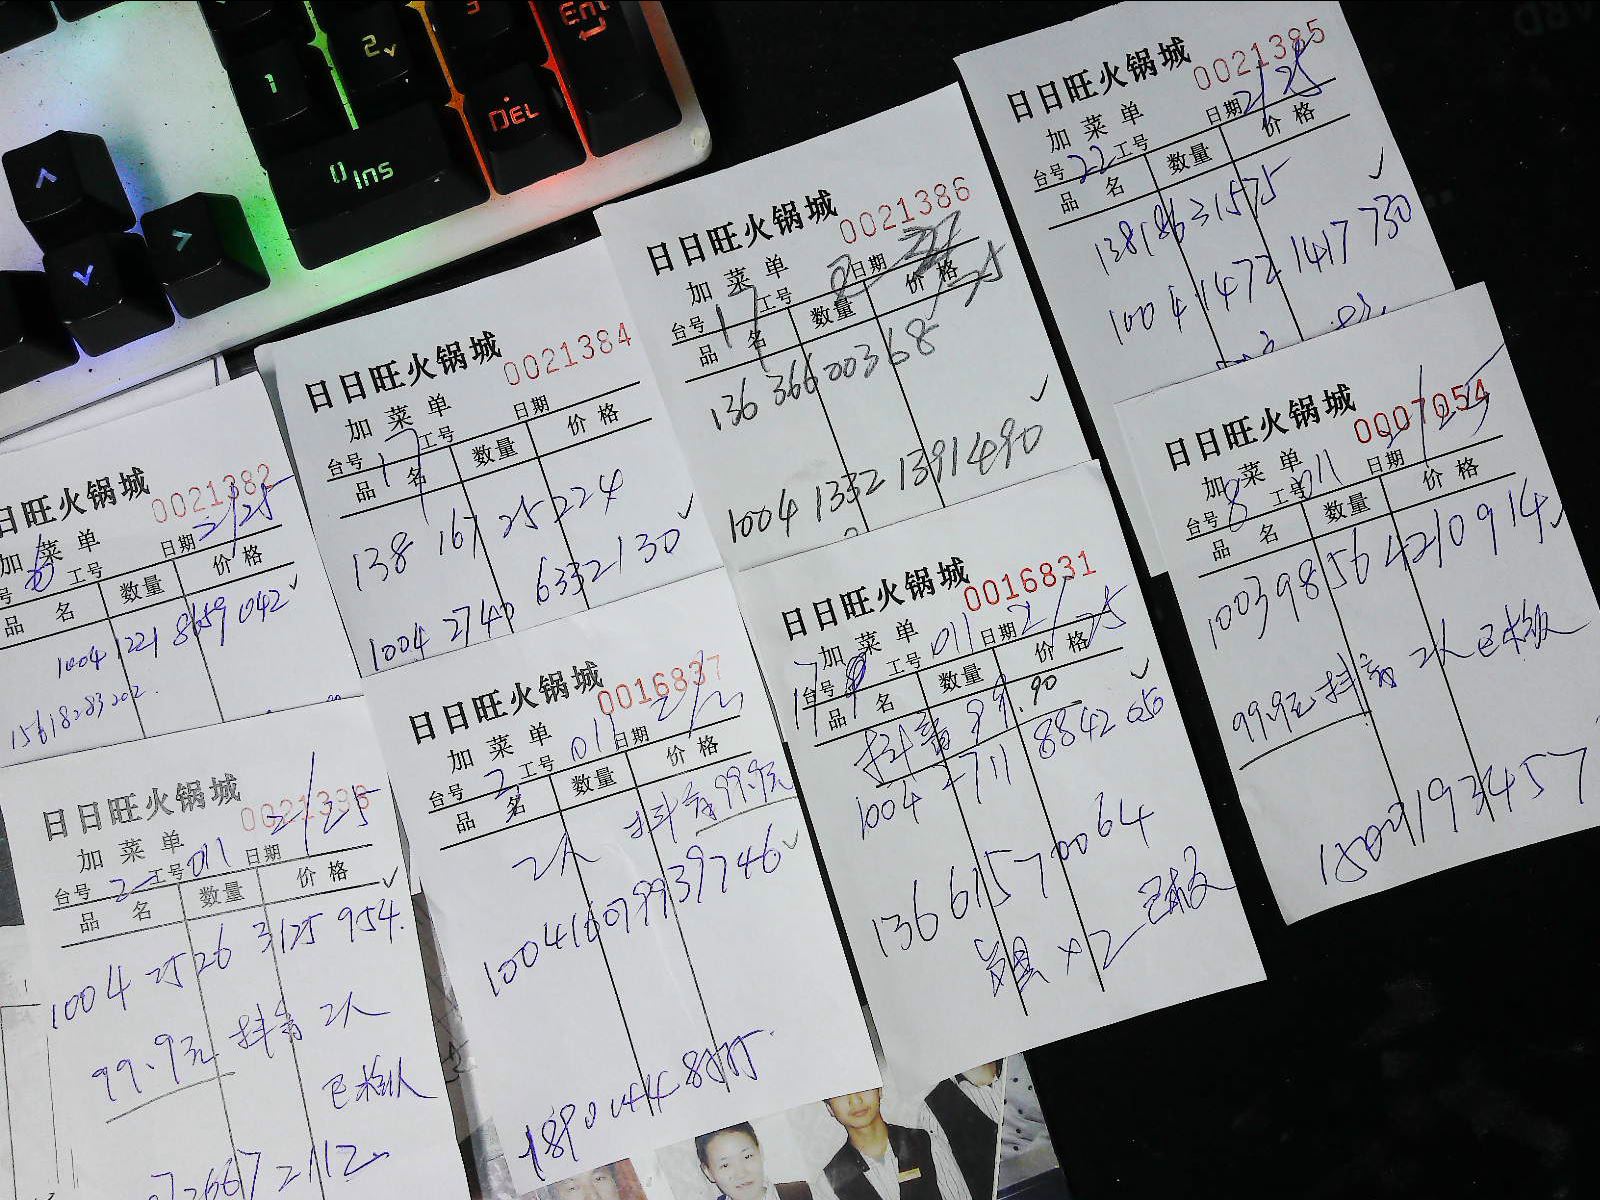 1
2
3
Ent
0 Ins
DEL
日日旺火锅城 0021385
加菜单 日期 2/25
台号 22 工号
品名 数量 价格
13818631575
1004 1472 1417 730
日日旺火锅城 0021386
加菜单 日期
台号 17 工号
品名 数量 价格
136 366 00368
1004 1332 1391490
日日旺火锅城 0021384
加菜单 日期
台号 17 工号
品名 数量 价格
138 167 25224
1004 2740 6332130
日日旺火锅城 0021382
加菜单 日期 2/25
号 工号
品名 数量 价格
1004 1221 8659 042
15618283202
日日旺火锅城 0007054
加菜单 日期 2/25
台号 8 工号 011
品名 数量 价格
100398564210914
99.9元 抖音 2人 已核
日日旺火锅城 0016831
加菜单 日期 2/25
台号 工号 011
品名 数量 价格
抖音 99.90
1004 2711 8842 050
13661570064
×2 已核
日日旺火锅城 0016837
加菜单 日期
台号 2 工号 011
品名 数量 价格
2人 抖音99.9元
100416079939746
日日旺火锅城
加菜单 日期 2/25
台号 2 工号 011
品名 数量 价格
1004 2526 3125 954
99.9元 抖音 2人
已核